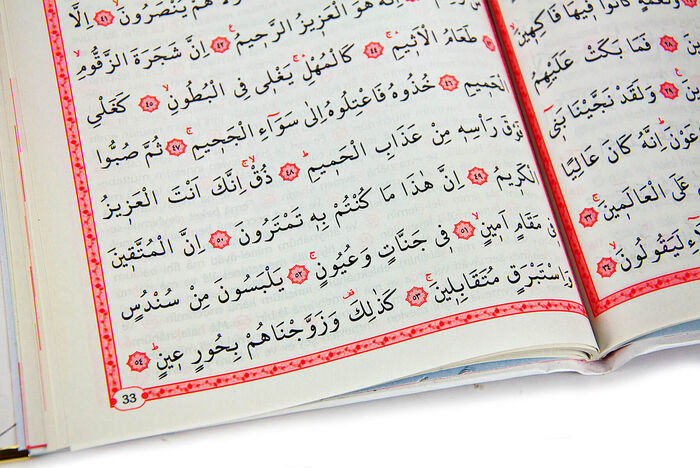 كَانُوا فِيهَا فَاكِهِينَ
فَمَا بَكَتْ عَلَيْهِمُ
وَلَقَدْ نَجَّيْنَا بَنِي
اِنَّهُ كَانَ عَالِيًا
عَلَى الْعَالَمِينَ ٣٢
لَيَقُولُونَ ٣٤
هُمْ يُنْصَرُونَ ٤١ اِلَّا
اِنَّهُ هُوَ الْعَزِيزُ الرَّحِيمُ ٤٢ اِنَّ شَجَرَةَ الزَّقُّومِ
طَعَامُ الْاَثِيمِ ٤٤ كَالْمُهْلِ يَغْلِي فِي الْبُطُونِ ٤٥ كَغَلْيِ
الْحَمِيمِ ٤٦ خُذُوهُ فَاعْتِلُوهُ اِلٰى سَوَاءِ الْجَحِيمِ ٤٧ ثُمَّ صُبُّوا
فَوْقَ رَأْسِهِ مِنْ عَذَابِ الْحَمِيمِ ٤٨ ذُقْ اِنَّكَ اَنْتَ الْعَزِيزُ
الْكَرِيمُ ٤٩ اِنَّ هٰذَا مَا كُنْتُمْ بِهِ تَمْتَرُونَ ٥٠ اِنَّ الْمُتَّقِينَ
فِي مَقَامٍ اَمِينٍ ٥١ فِي جَنَّاتٍ وَعُيُونٍ ٥٢ يَلْبَسُونَ مِنْ سُنْدُسٍ
وَاِسْتَبْرَقٍ مُتَقَابِلِينَ ٥٣ كَذٰلِكَ وَزَوَّجْنَاهُمْ بِحُورٍ عِينٍ ٥٤
33